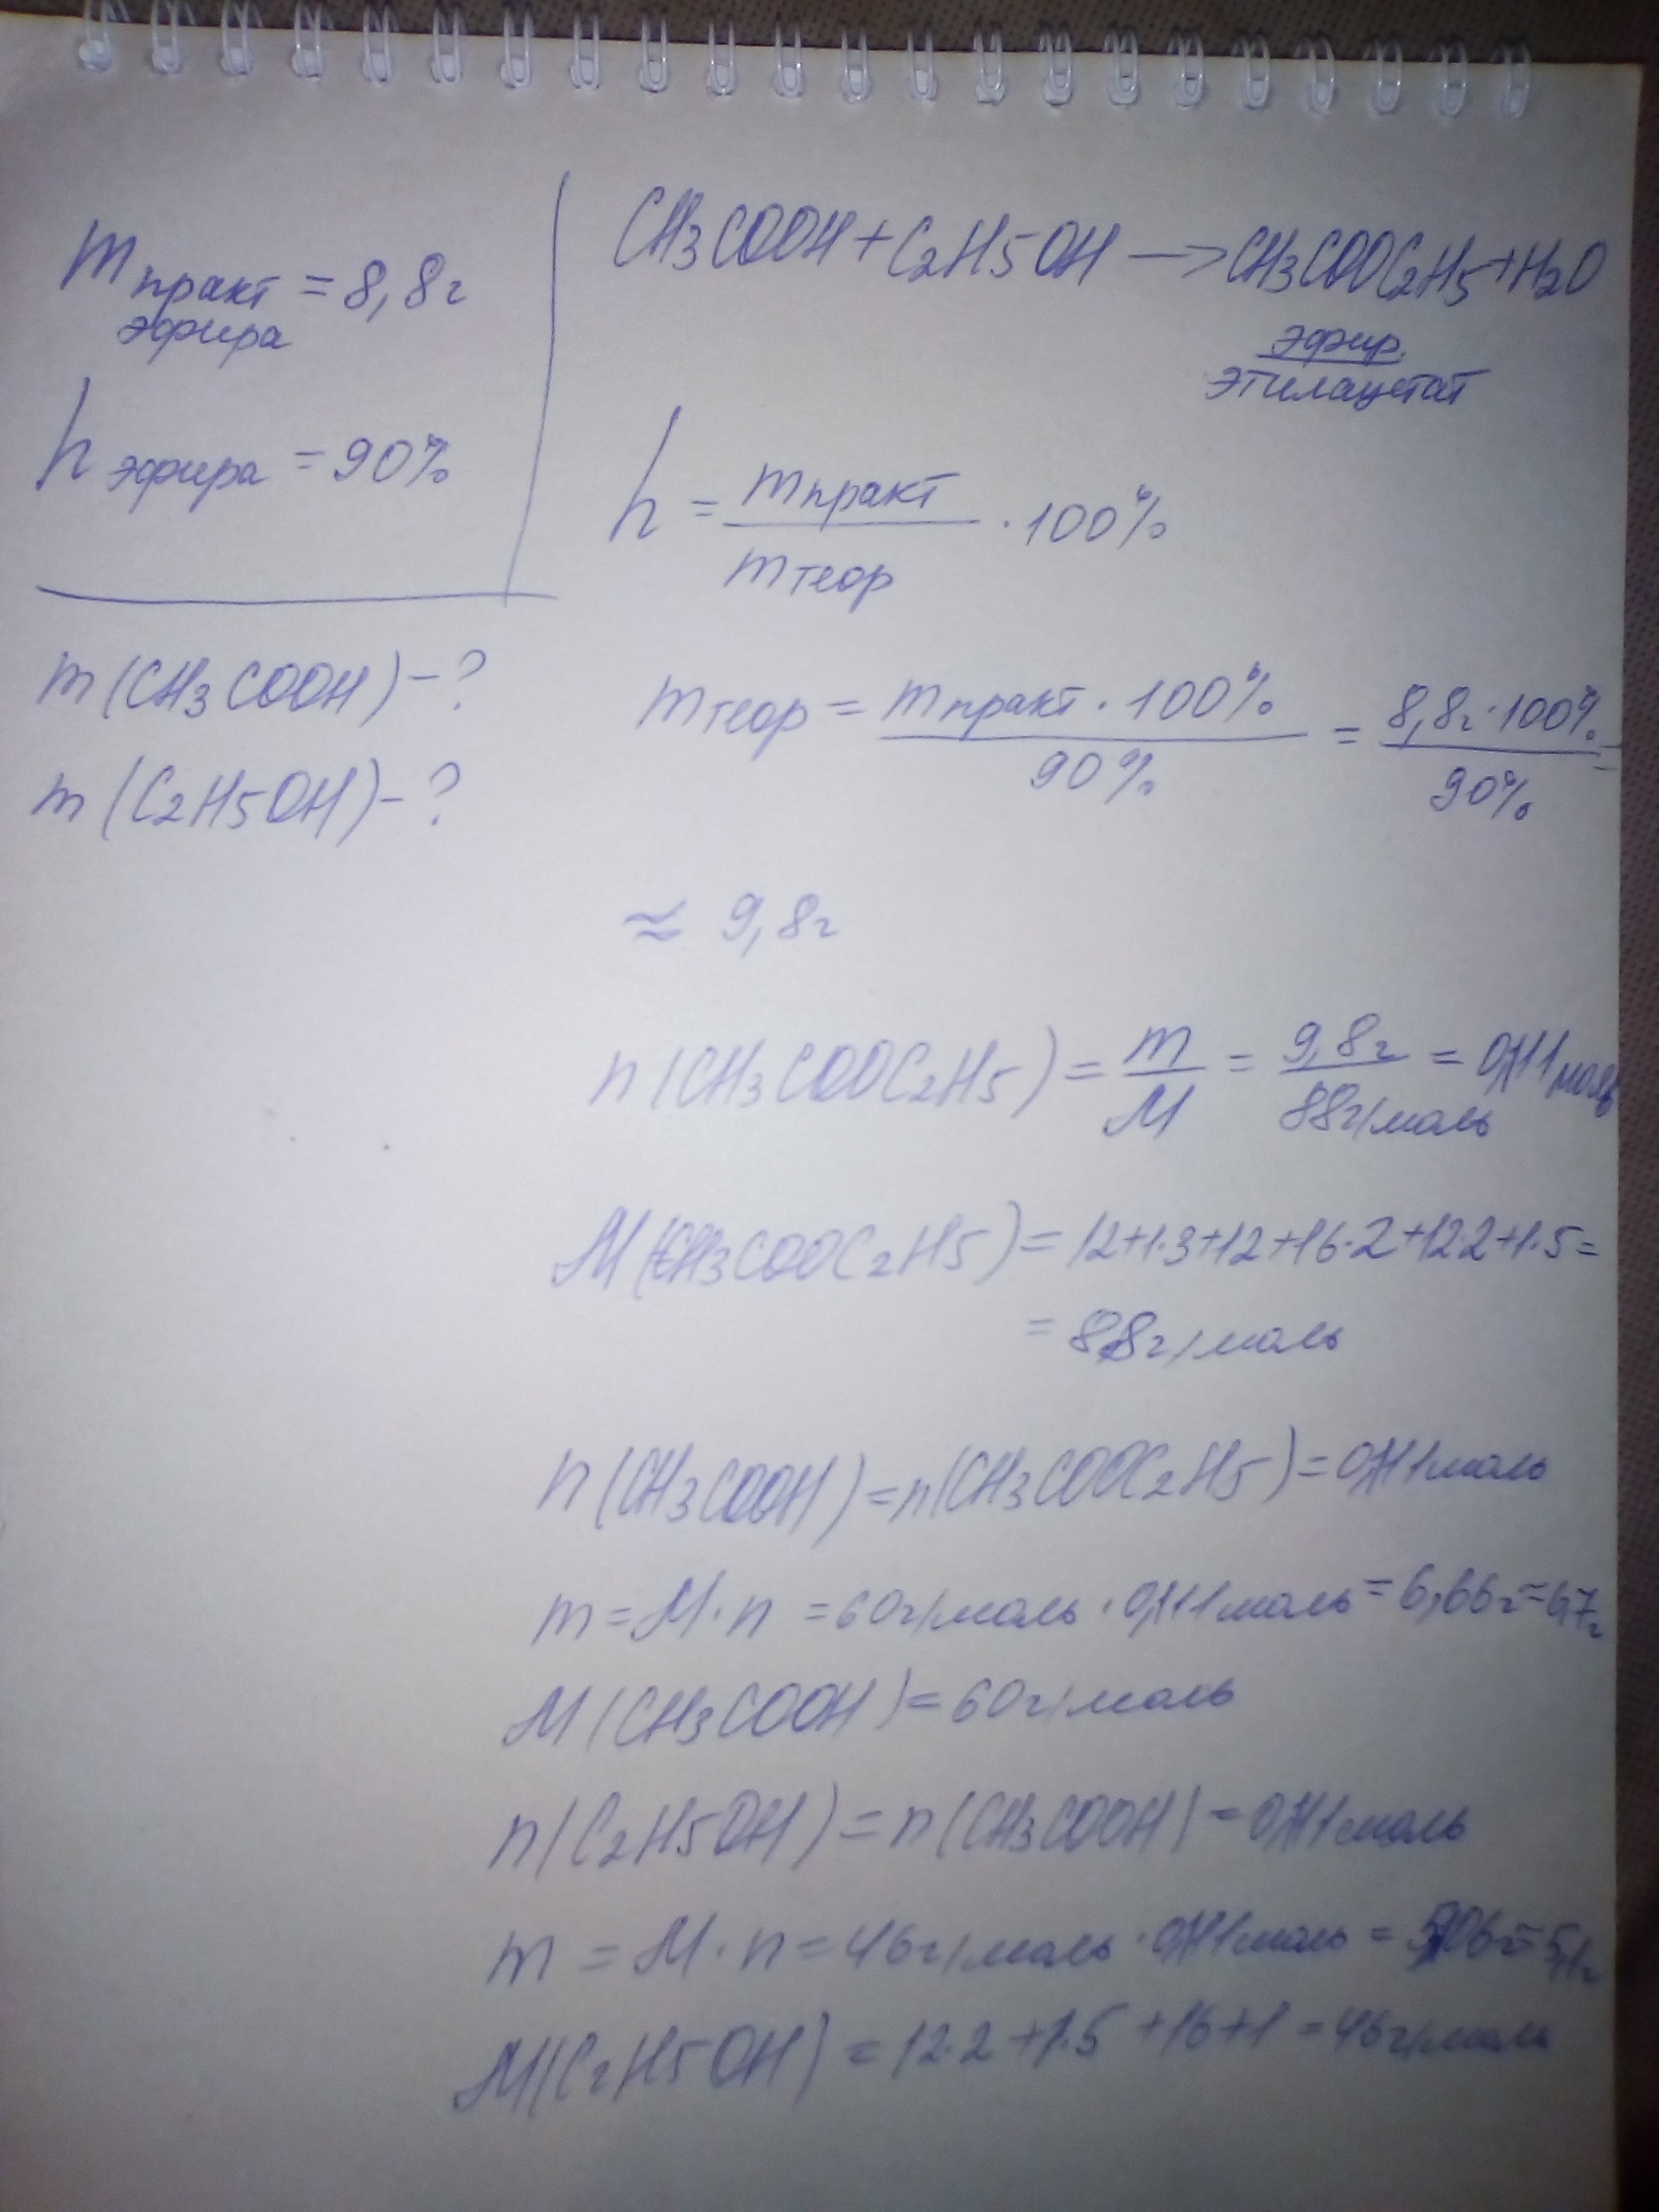 mпракт = 8,8г
эфира
h эфира = 90%
m(CH3COOH) - ?
m(C2H5OH) - ?
CH3COOH + C2H5OH —> CH3COOC2H5 + H2O
эфир
этилацетат
h = mпракт / mтеор · 100%
mтеор = mпракт · 100% / 90% = 8,8г · 100% / 90% =
≈ 9,8г
n(CH3COOC2H5) = m / M = 9,8г / 88г/моль = 0,111моль
M(CH3COOC2H5) = 12+1·3+12+16·2+12·2+1·5 =
= 88г/моль
n(CH3COOH) = n(CH3COOC2H5) = 0,111моль
m = M · n = 60г/моль · 0,111моль = 6,66г = 6,7г
M(CH3COOH) = 60г/моль
n(C2H5OH) = n(CH3COOH) = 0,111моль
m = M · n = 46г/моль · 0,111моль = 5,106г = 5,1г
M(C2H5OH) = 12·2 + 1·5 + 16 + 1 = 46г/моль